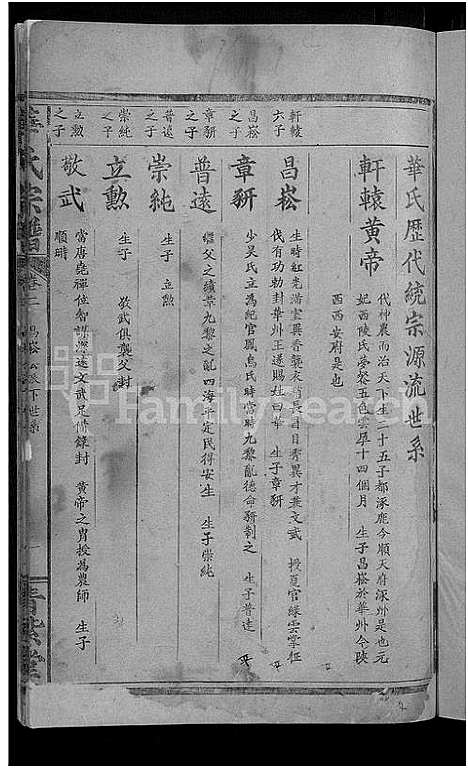 華氏歷代統宗源流世系
軒轅黃帝
代神農而治天下生二十五子都涿鹿今順天府涿州是也元
妃西陵氏夢餐五色雲孕十四個月 生子昌崧於華州今陝
西西安府是也
軒轅
六子
昌崧
生時紅光滿室異香襲衣稍長眉目秀異才兼文武 授夏官緣雲掌征
伐有功勅封華州王遂賜姓曰華 生子章豣
昌崧
之子
章豣
少昊氏立為紀官鳳鳥氏時當時九黎亂德命豣制之 生子普遠
章豣
之子
普遠
繼父之績章九黎之亂四海平定民得安生 生子崇純
普遠
之子
崇純
生子 立勳
崇純
之子
立勳
生子 敬武俱襲父封
立勳
之子
敬武
當唐堯禪位智謀 述文武足備錄封 黃帝之胄授為農師 生子
順時
華氏宗譜
卷二
昌崧公以下世系
一
青紫堂
FamilySearch